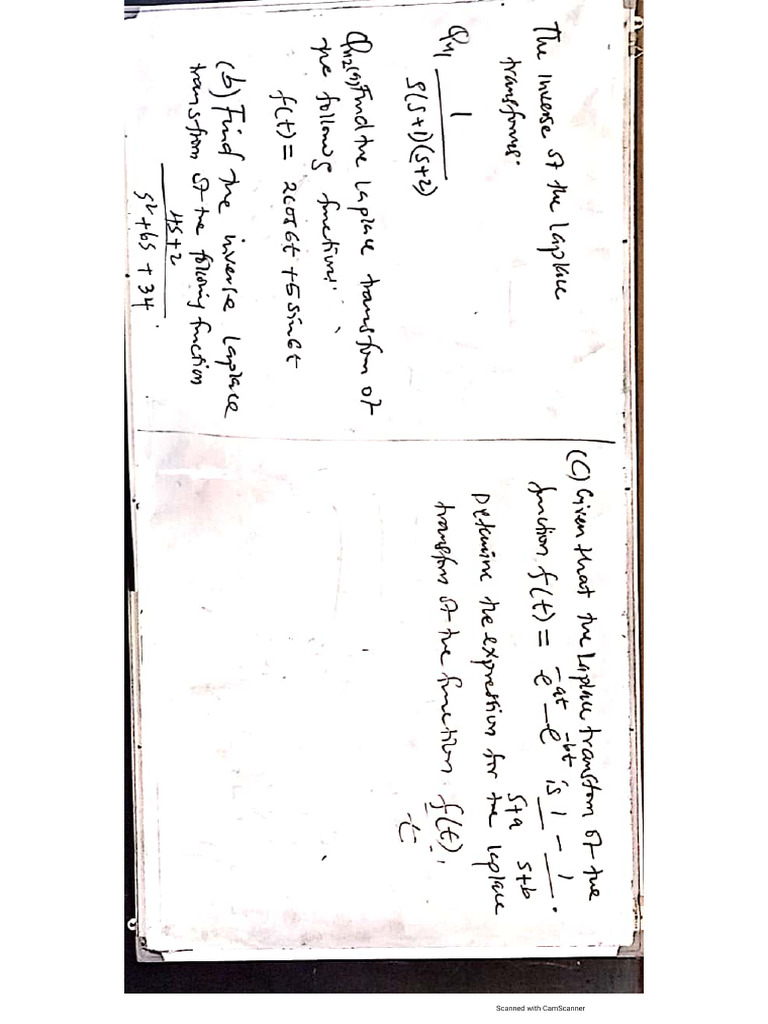 The inverse of the Laplace
transforms.
Qn1 1
s(s+1)(s+2)
Qn2(a) Find the Laplace transform of
the following function:
f(t) = 2cos6t + 5sin6t
(b) Find the inverse Laplace
transfrom of the following function
4s+2
s²+6s+34
(C) Given that the Laplace transform of the
function f(t) = e^-at - e^-bt is 1 - 1 .
s+a s+b
Determine the expression for the Laplace
transform of the function f(t).
t
Scanned with CamScanner